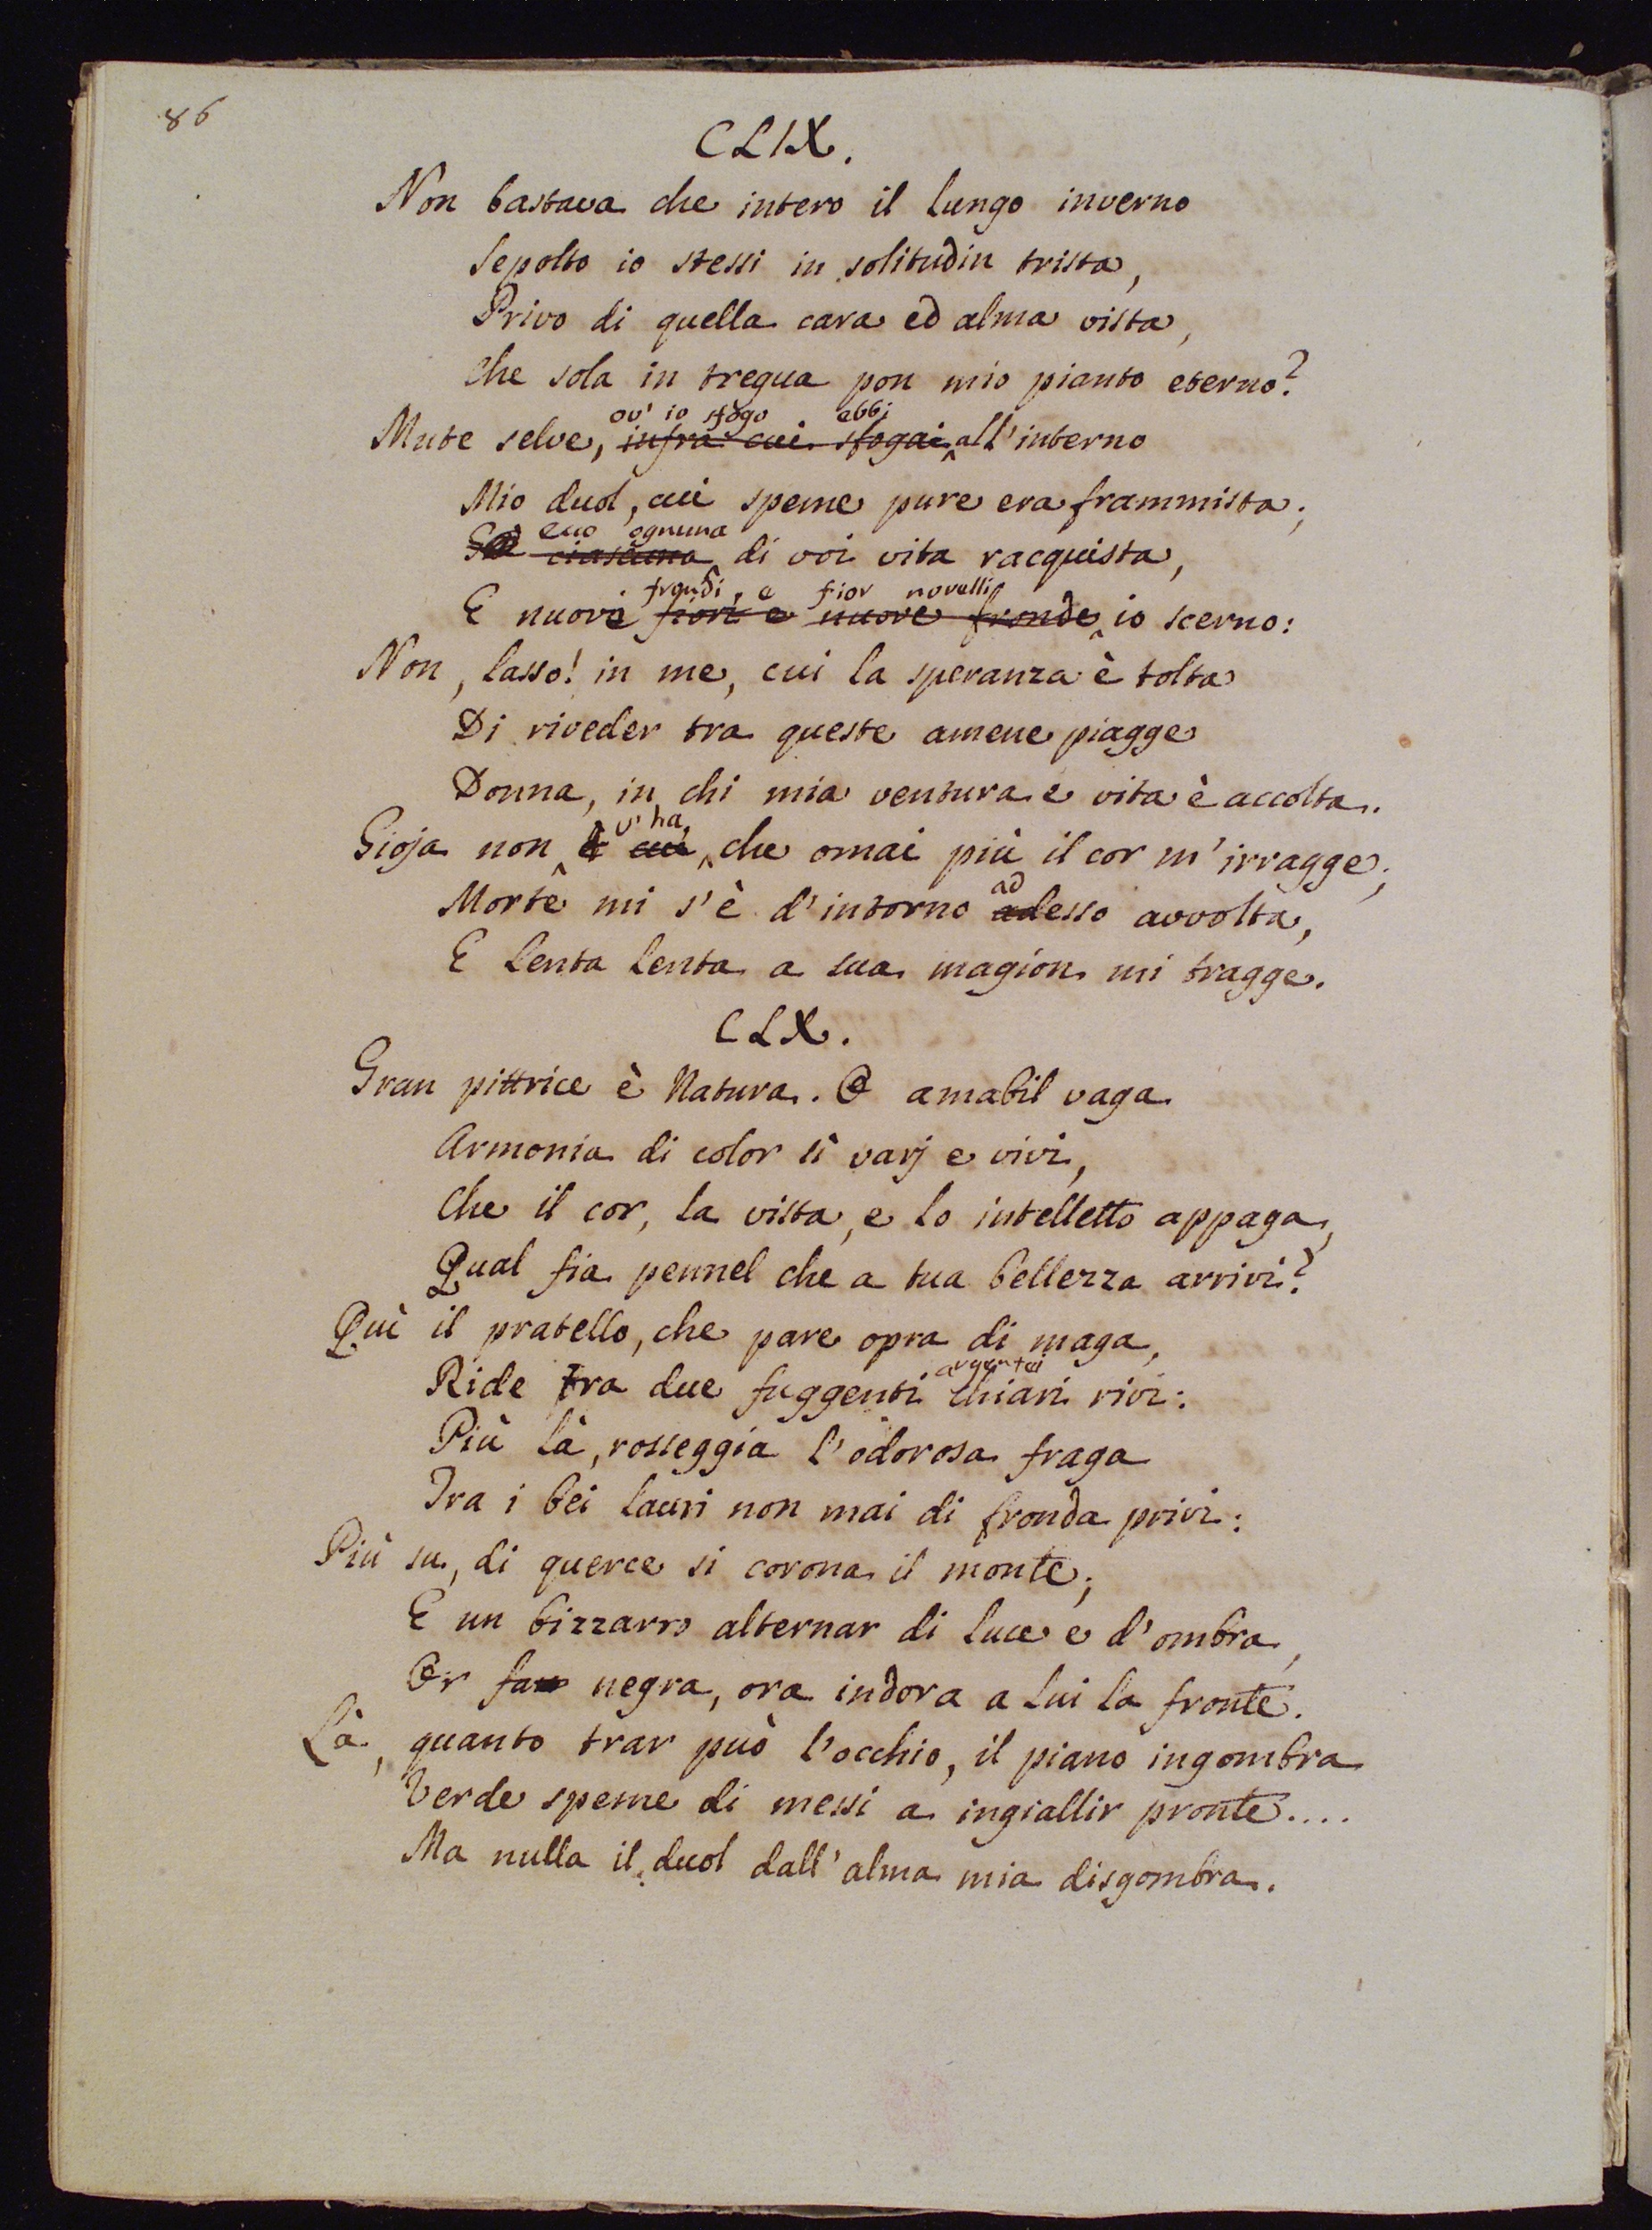 86
CLIX.
Non bastava che intero il lungo inverno
Sepolto io stessi in solitudin trista,
Privo di quella cara ed alma vista,
Che sola in tregua pon mio pianto eterno?
ov' io sfogo ebbi
Mute selve, infra cui sfogai all'interno
Mio duol, cui speme pure era frammista;
ecco ognuna
ciascuna di voi vita racquista,
frondi, e fior novelli
E nuove fiori e nuove fronde io scerno:
Non, lasso! in me, cui la speranza è tolta
Di riveder tra queste amene piagge
Donna, in chi mia ventura e vita è accolta.
v' ha,
Gioja non è cui che omai più il cor m'irragge;
ad
Morte mi s'è d'intorno adesso avvolta,
E lenta lenta a sua magion mi tragge.
CLX.
Gran pittrice è Natura. O amabil vaga
Armonia di color sì varj e vivi,
Che il cor, la vista, e lo intelletto appaga,
Qual fia pennel che a tua bellezza arrivi?
Quì il pratello, che pare opra di maga,
argentei
Ride tra due fuggenti chiari rivi:
Più là, rosseggia l'odorosa fraga
Tra i bei lauri non mai di fronda privi:
Più su, di querce si corona il monte;
E un bizzarro alternar di luce e d'ombra,
Or fa negra, ora indora a lui la fronte.
Là, quanto trar può l'occhio, il piano ingombra
Verde speme di messi a ingiallir pronte....
Ma nulla il duol dall'alma mia disgombra.